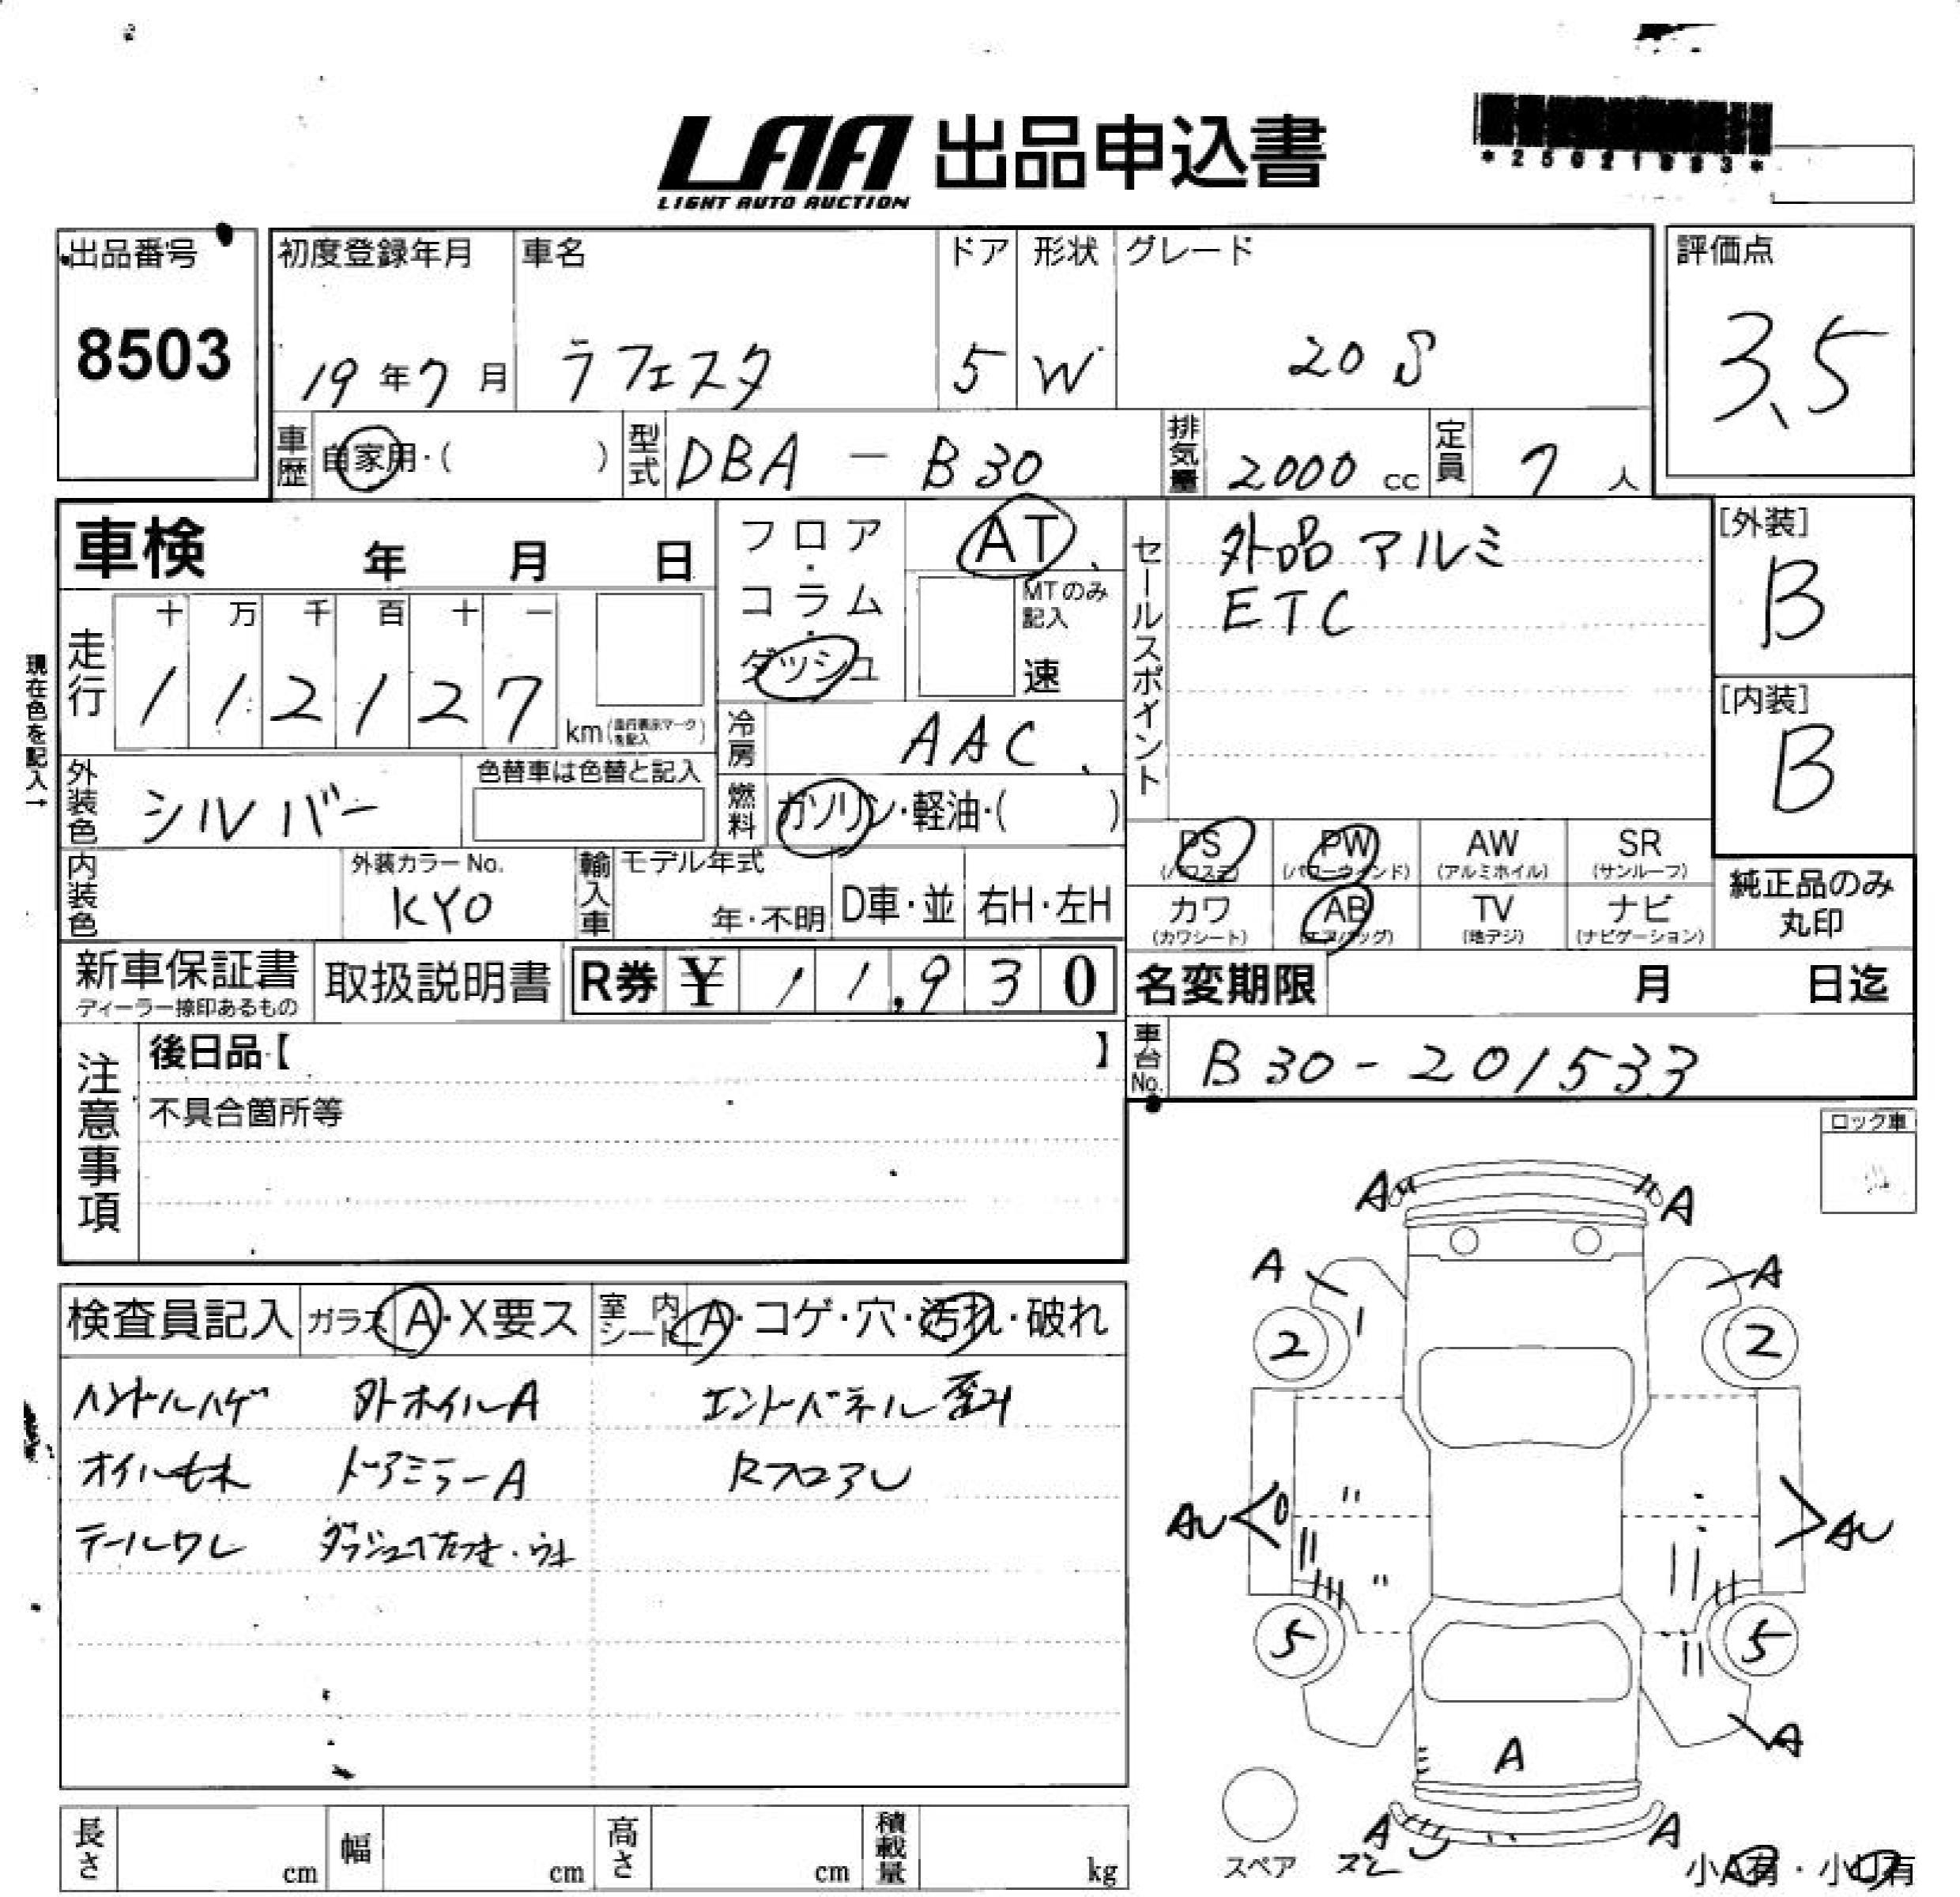 LAA 出品申込書
LIGHT AUTO AUCTION
出品番号 初度登録年月 車名 ドア 形状 グレード 評価点
8503 19年7月 ラフェスタ 5 W 20S 3.5
車歴 自家用・( ) 型式 DBA－B30 排気量 2000cc 定員 7人
車検 年 月 日
フロア・コラム・ダッシュ
AT
MTのみ記入
速
セールスポイント
外品アルミ
ETC
[外装]
B
[内装]
B
現在色を記入→
走行 十 万 千 百 十 一
112127 km(走行表示マークを記入)
冷房 AAC
外装色 シルバー 色替車は色替と記入
燃料 ガソリン・軽油・( )
PS AW SR
PW
(パワステ) (パワーウィンド) (アルミホイル) (サンルーフ)
カワ AB TV ナビ
(カワシート) (エアバッグ) (地デジ) (ナビゲーション)
純正品のみ
丸印
内装色 外装カラーNo. KY0 輸入車 モデル年式 年・不明 D車・並 右H・左H
新車保証書 取扱説明書 R券 ¥11,930
ディーラー捺印あるもの
名変期限 月 日迄
車台No. B30-201533
注意事項
後日品【 】
不具合箇所等
ロック車
検査員記入 ガラス A・X要ス 室内シート A・コゲ・穴・汚れ・破れ
ハンドルハゲ 外ホイルA エンドパネル歪み
オイルモレ ドアミラーA RフロアU
テールワレ
A A
A A
2 2
AU AU
5 5
A
A
A A
スペア ズレ
小A有・小U有
長さ cm 幅 cm 高さ cm 積載量 kg